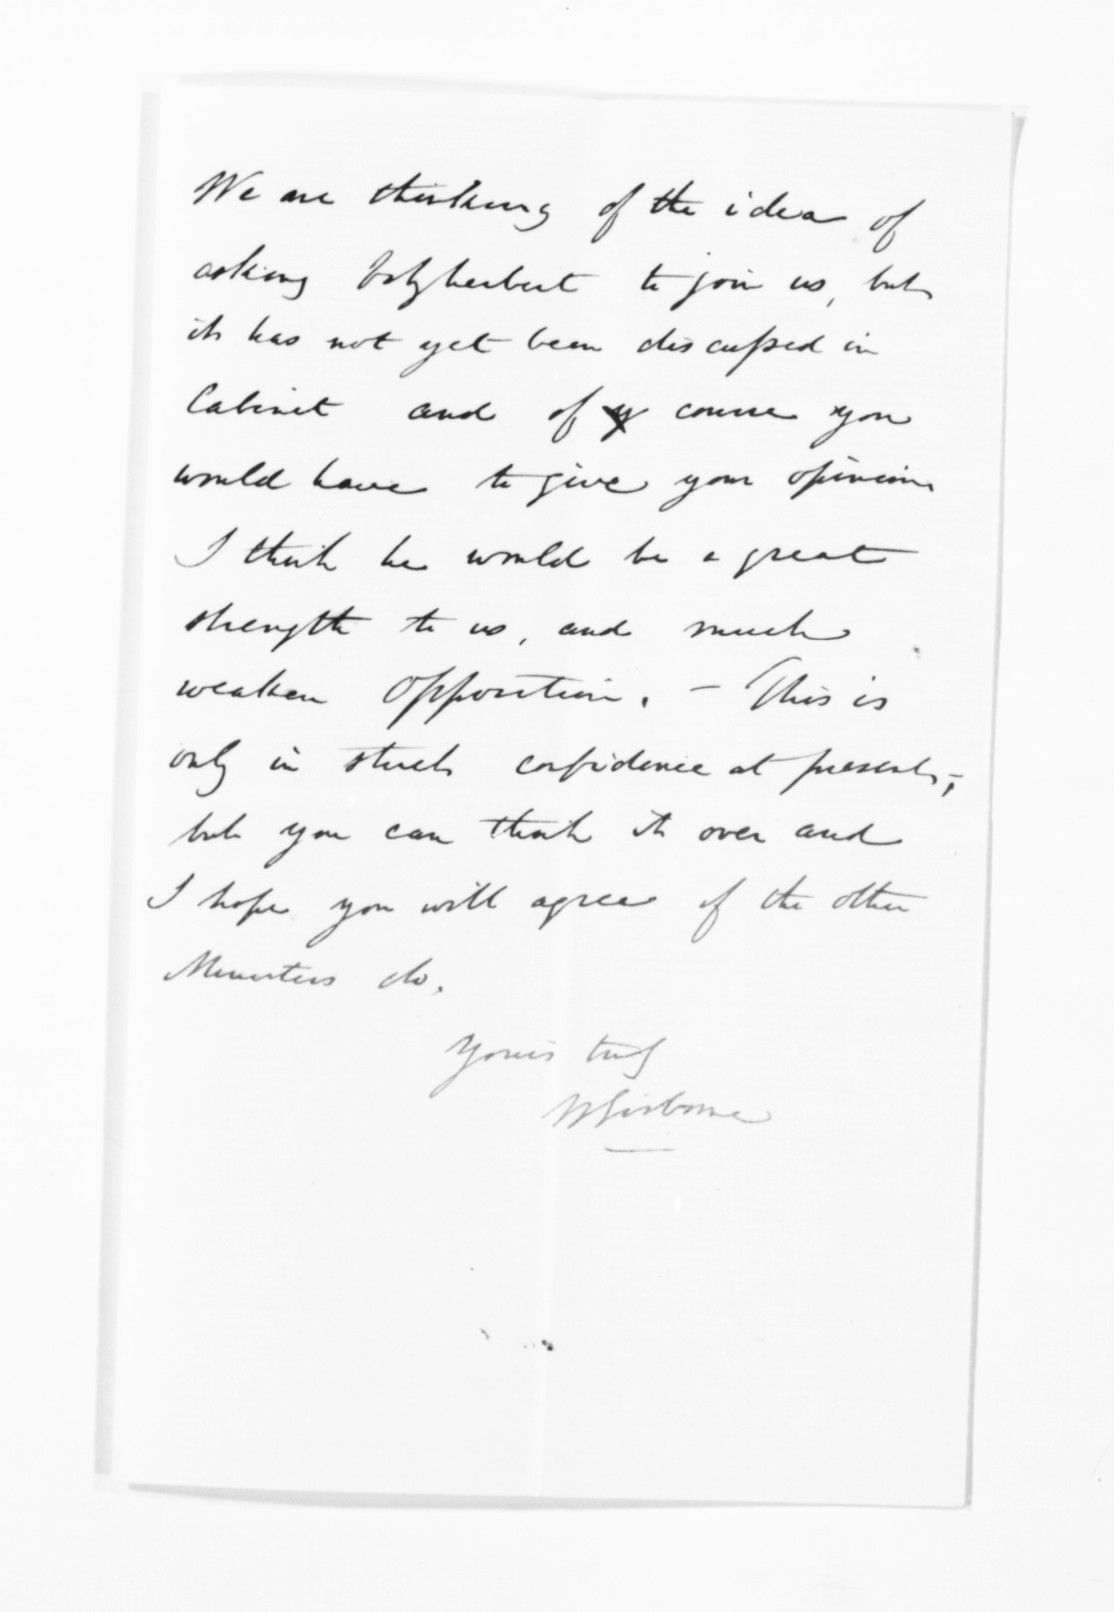 We are thinking of the idea of
asking Fitzherbert to join us, but
it has not yet been discussed in
Cabinet and of course you
would have to give your opinion
I think he would be a great
strength to us, and much
weaken Opposition. - This is
only in strict confidence at present,
but you can think it over and
I hope you will agree if the other
Ministers do.
Yours truly
WGisborne